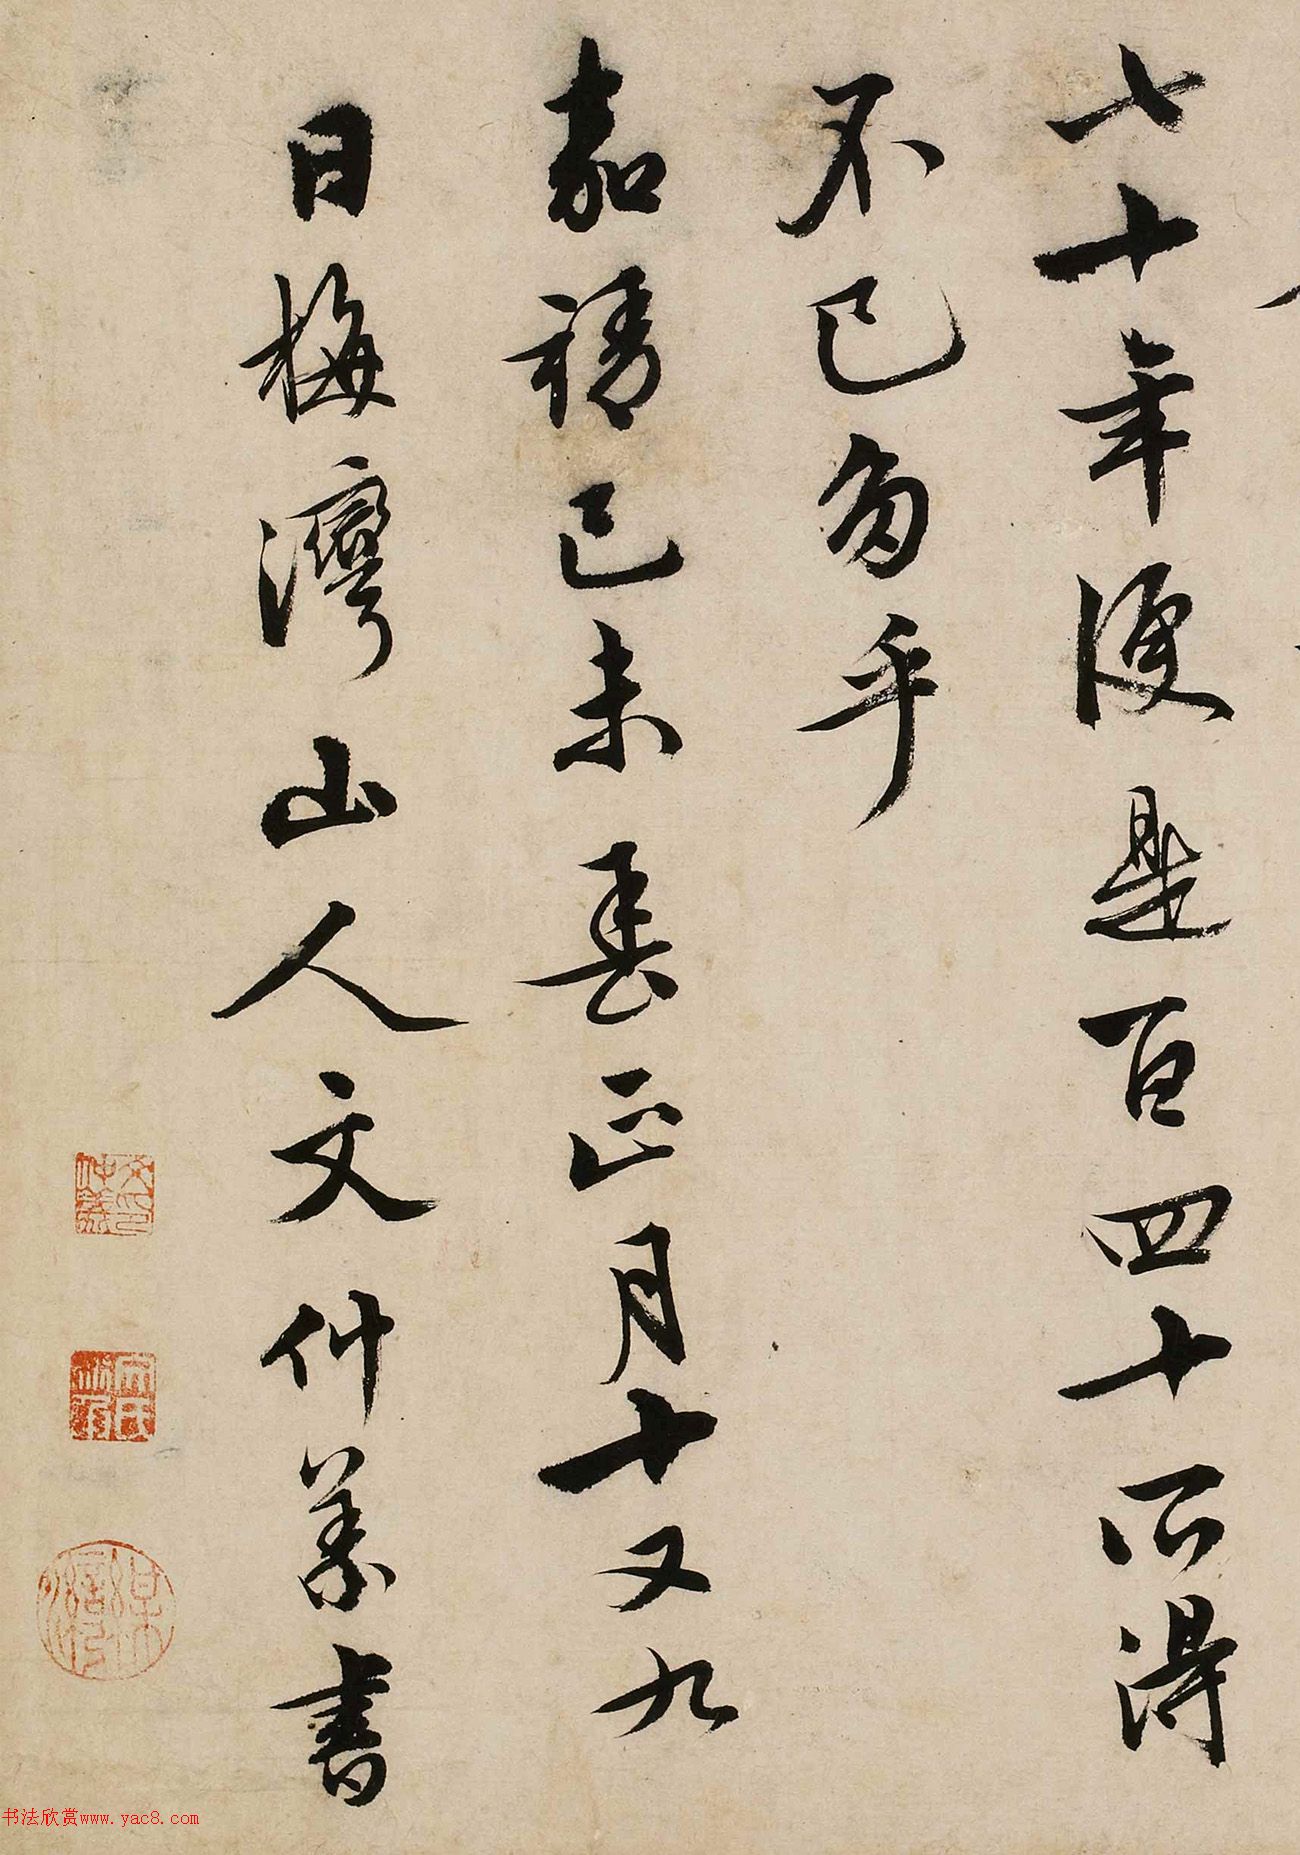 七十年便是百四十所得
不已多乎
嘉靖己未春正月十又九
日梅灣山人文仲義書
書法欣赏www.yac8.com